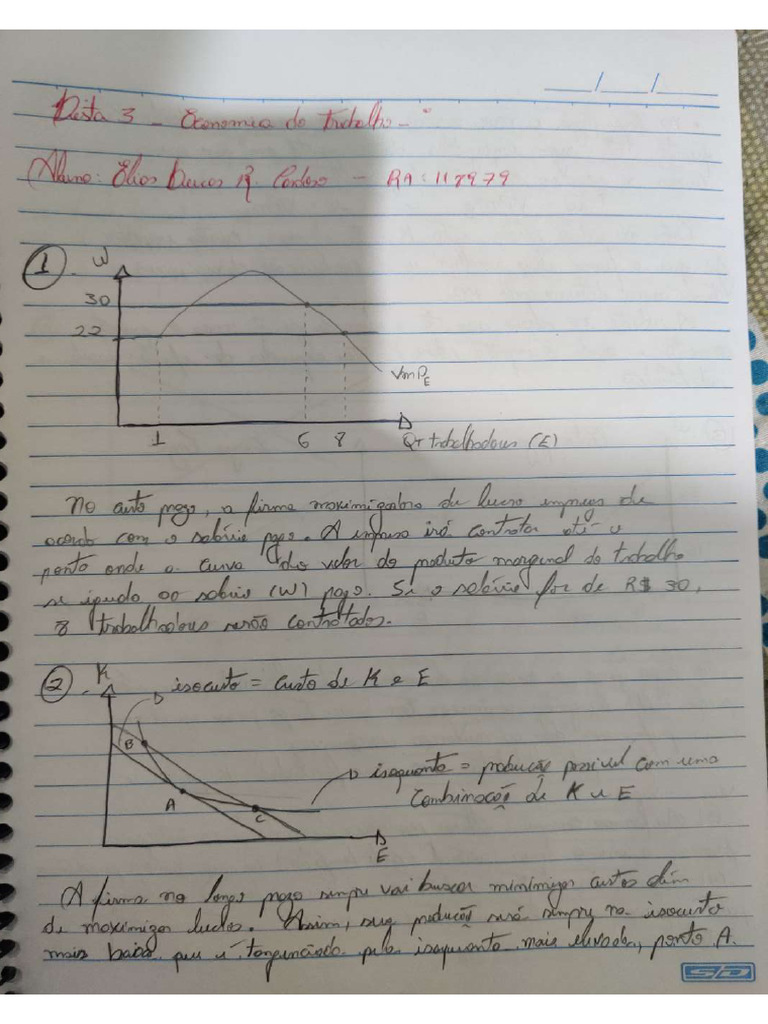 Lista 3 - Economia do trabalho -
Aluno: R. Cardoso - RA: 118979
1
W
30
22
VmPE
1 6 8 Qt trabalhadores (E)
No curto prazo, a firma maximizadora de lucro emprega de
acordo com o salário pago. A empresa irá contratar até o
ponto onde a curva do valor do produto marginal do trabalho
se iguala ao salário (W) pago. Se o salário for de R$ 30,
8 trabalhadores serão contratados.
2
K
isocusto = custo de K e E
B
isoquanta = produção possível com uma
combinação de K e E
A
C
E
A firma no longo prazo sempre vai buscar minimizar custos além
de maximizar lucros. Assim, sua produção será sempre na isocusto
mais baixa que é tangenciada pela isoquanta mais elevada, ponto A.
SD